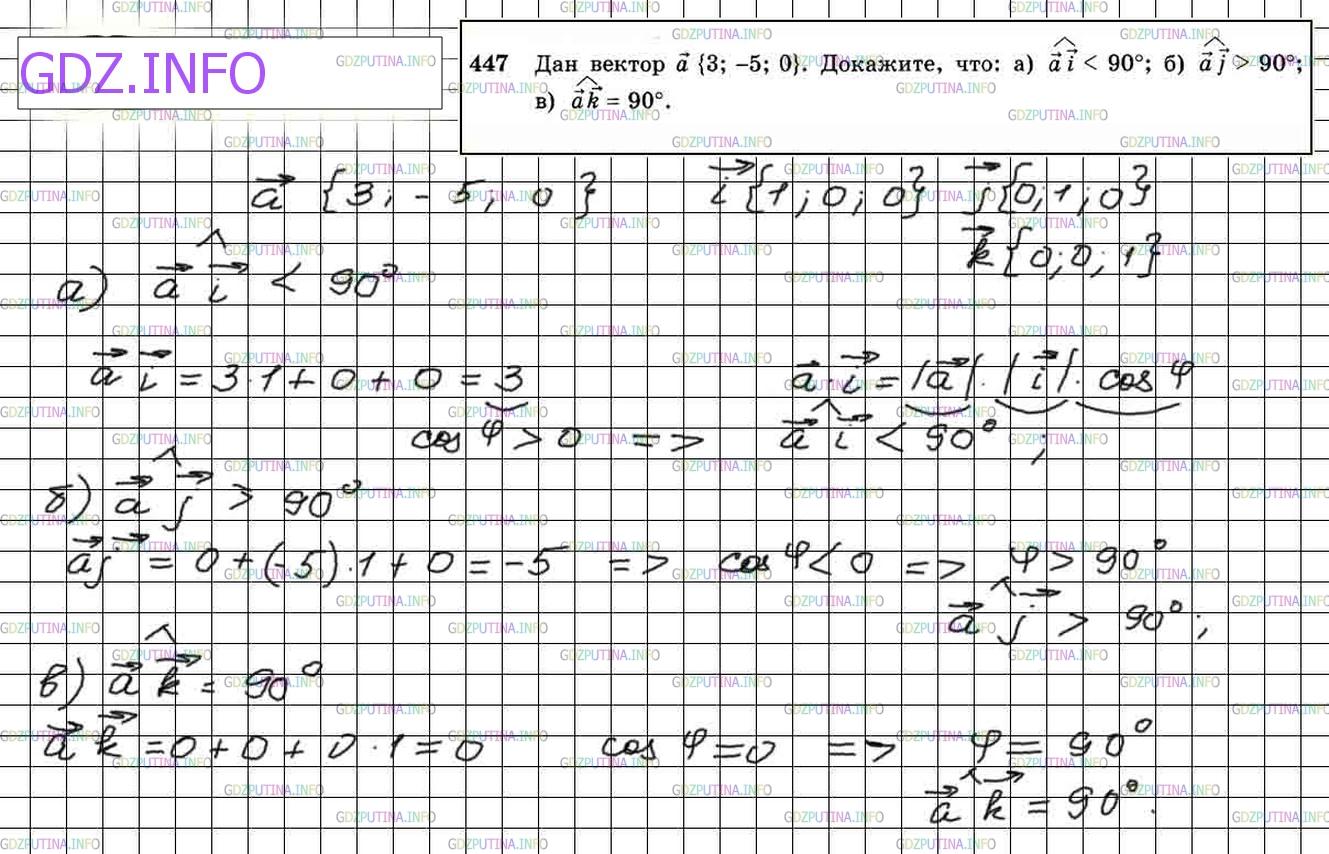 GDZ.INFO
447 Дан вектор a⃗ {3; –5; 0}. Докажите, что: а) a⃗ i⃗ < 90°; б) a⃗ j⃗ > 90°;
в) a⃗ k⃗ = 90°.
a⃗ {3; -5; 0} i⃗ {1; 0; 0} j⃗ {0; 1; 0}
k⃗ {0; 0; 1}
а) a⃗ ^ i⃗ < 90°
a⃗ i⃗ = 3·1 + 0 + 0 = 3 a⃗·i⃗ = |a⃗|·|i⃗|·cos φ
cos φ > 0 => a⃗ ^ i⃗ < 90°;
б) a⃗ ^ j⃗ > 90°
a⃗ j⃗ = 0 + (-5)·1 + 0 = -5 => cos φ < 0 => φ > 90°
a⃗ ^ j⃗ > 90°;
в) a⃗ ^ k⃗ = 90°
a⃗ k⃗ = 0 + 0 + 0·1 = 0 cos φ = 0 => φ = 90°
a⃗ ^ k⃗ = 90°.
GDZPUTINA.INFO